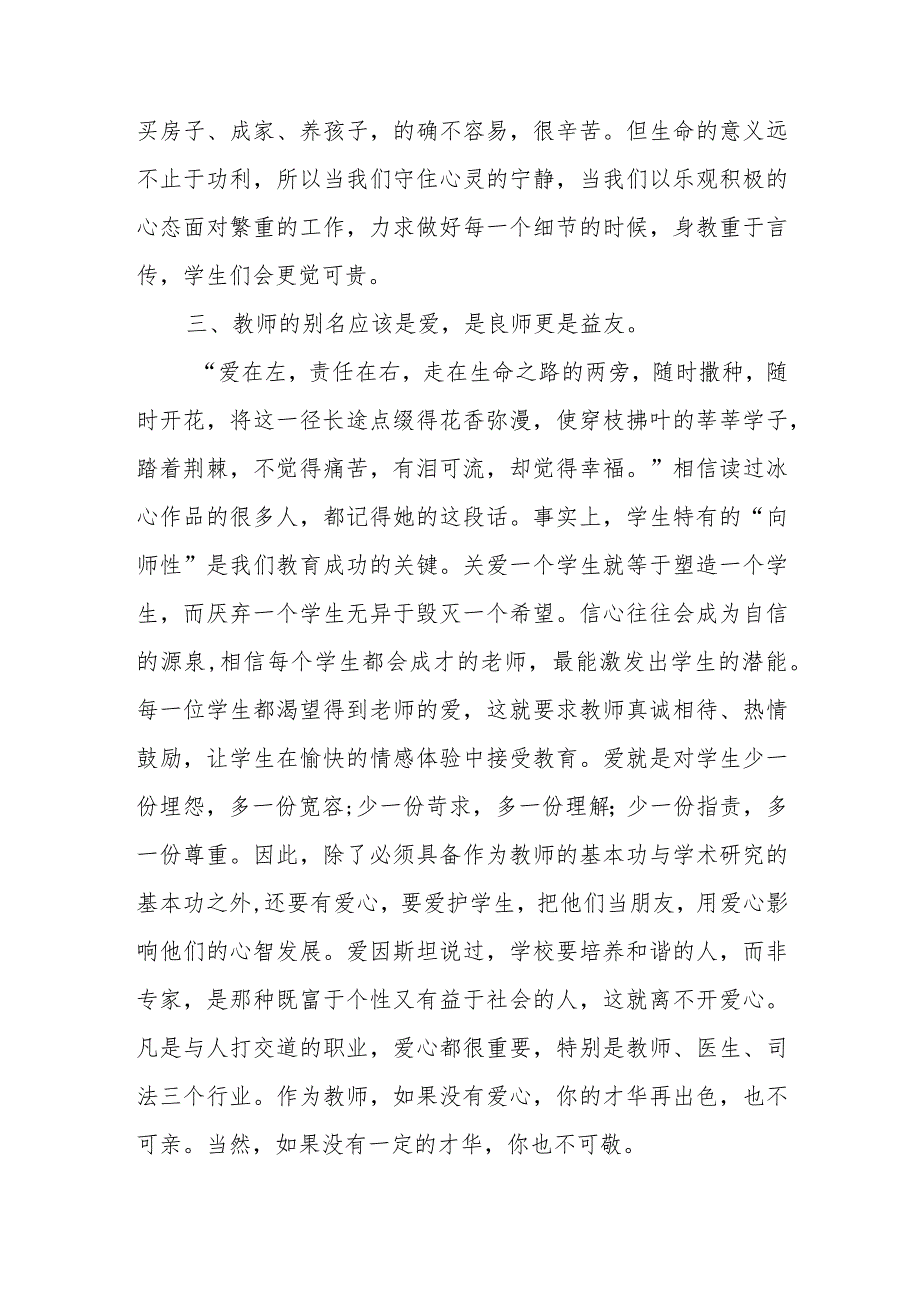 买房子、成家、养孩子，的确不容易，很辛苦。但生命的意义远
不止于功利，所以当我们守住心灵的宁静，当我们以乐观积极的
心态面对繁重的工作，力求做好每一个细节的时候，身教重于言
传，学生们会更觉可贵。
三、教师的别名应该是爱，是良师更是益友。
“爱在左，责任在右，走在生命之路的两旁，随时撒种，随
时开花，将这一径长途点缀得花香弥漫，使穿枝拂叶的莘莘学子，
踏着荆棘，不觉得痛苦，有泪可流，却觉得幸福。”相信读过冰
心作品的很多人，都记得她的这段话。事实上，学生特有的“向
师性”是我们教育成功的关键。关爱一个学生就等于塑造一个学
生，而厌弃一个学生无异于毁灭一个希望。信心往往会成为自信
的源泉,相信每个学生都会成才的老师，最能激发出学生的潜能。
每一位学生都渴望得到老师的爱，这就要求教师真诚相待、热情
鼓励，让学生在愉快的情感体验中接受教育。爱就是对学生少一
份埋怨，多一份宽容;少一份苛求，多一份理解；少一份指责，多
一份尊重。因此，除了必须具备作为教师的基本功与学术研究的
基本功之外,还要有爱心，要爱护学生，把他们当朋友，用爱心影
响他们的心智发展。爱因斯坦说过，学校要培养和谐的人，而非
专家，是那种既富于个性又有益于社会的人，这就离不开爱心。
凡是与人打交道的职业，爱心都很重要，特别是教师、医生、司
法三个行业。作为教师，如果没有爱心，你的才华再出色，也不
可亲。当然，如果没有一定的才华，你也不可敬。